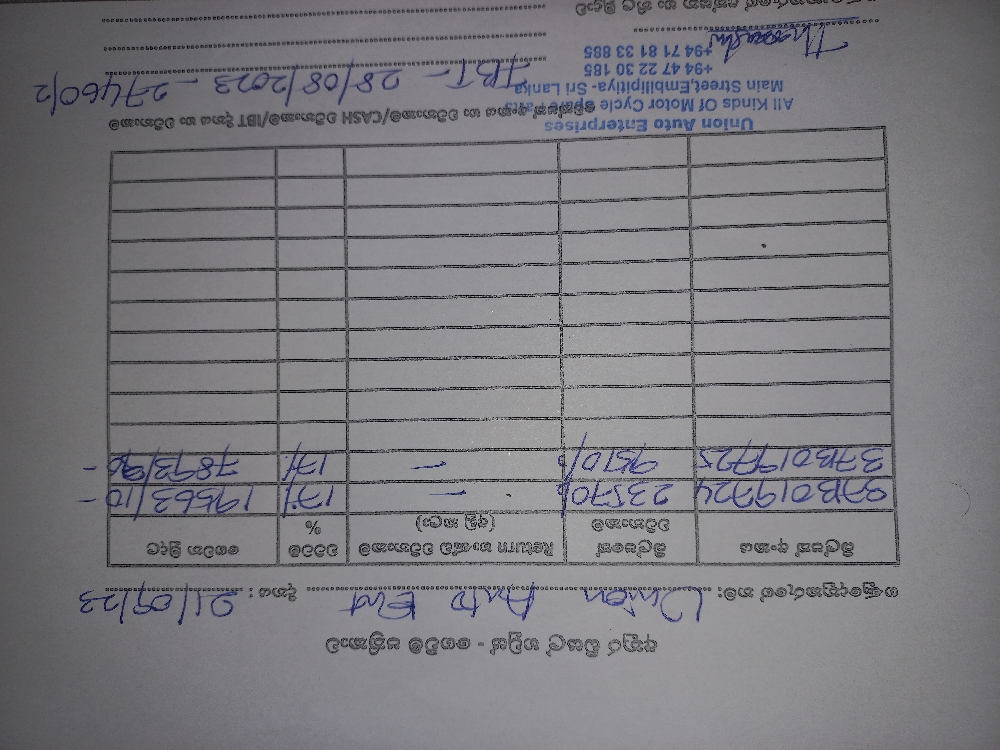 ගෙවීම් පත්‍රිකාව
ගණුදෙනුකරුගේ නම: Union Auto Ent දිනය :
බිල්පත් අංකය බිල්පතේ වටිනාකම Return භාණ්ඩ වටිනාකම (අඩු කලා) වට්ටම් % ගෙවන මුදල
37B019724 23570/- — 17% 19563/10 -
37B019725 9510/- — 17% 7893/30 -
චෙක්පත් අංකය හා වටිනාකම/CASH වටිනාකම/IBT දිනය හා වටිනාකම
Union Auto Enterprises
All Kinds Of Motor Cycle Spare Parts
Main Street,Embilipitiya- Sri Lanka
+94 47 22 30 185
+94 71 81 33 885
IBT - 28/08/2023 - 27460/=